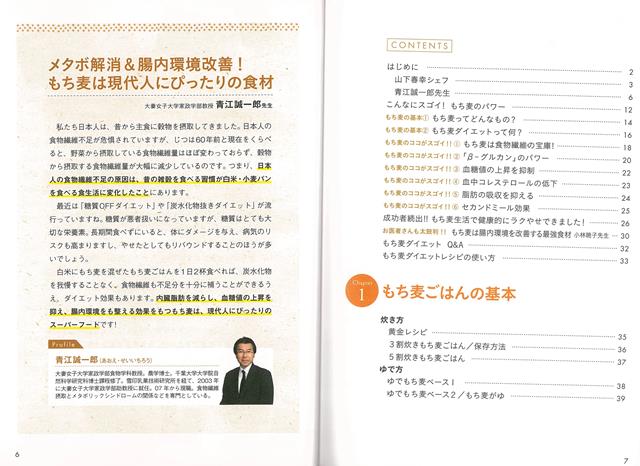 メタボ解消&腸内環境改善!
もち麦は現代人にぴったりの食材
大妻女子大学家政学部教授 青江誠一郎先生
私たち日本人は、昔から主食に穀物を摂取してきました。日本人の
食物繊維不足が危惧されていますが、じつは60年前と現在をくらべ
ると、野菜から摂取している食物繊維量はほぼ変わっておらず、穀物
から摂取する食物繊維量が大幅に減少しているのです。つまり、日本
人の食物繊維不足の原因は、昔の雑穀を食べる習慣が白米・小麦パン
を食べる食生活に変化したことにあります。
最近は「糖質OFFダイエット」や「炭水化物抜きダイエット」が流
行っていますね。糖質が悪者扱いになっていますが、糖質はとても大
切な栄養素。長期間食べずにいると、体にダメージを与え、病気のリ
スクも高まりますし、やせたとしてもリバウンドすることのほうが多
いでしょう。
白米にもち麦を混ぜたもち麦ごはんを1日2杯食べれば、炭水化物
を我慢することなく、食物繊維も不足分を十分に補うことができるう
え、ダイエット効果もあります。内臓脂肪を減らし、血糖値の上昇を
抑え、腸内環境をも整える効果をもつもち麦は、現代人にぴったりの
スーパーフードです!
Profile
青江誠一郎(あおえ・せいいちろう)
大妻女子大学家政学部食物学科教授。農学博士。千葉大学大学院自
然科学研究科博士課程修了。雪印乳業技術研究所を経て、2003年
に大妻女子大学家政学部助教授に就任。07年から現職。食物繊維
摂取とメタボリックシンドロームの関係などを専門としている。
6
CONTENTS
はじめに 2
山下春幸シェフ 3
青江誠一郎先生 6
こんなにスゴイ! もち麦のパワー 12
もち麦の基本① もち麦ってどんなもの? 14
もち麦の基本② もち麦ダイエットって何? 16
もち麦のココがスゴイ!!① もち麦は食物繊維の宝庫! 18
もち麦のココがスゴイ!!②「β-グルカン」のパワー 20
もち麦のココがスゴイ!!③ 血糖値の上昇を抑制 22
もち麦のココがスゴイ!!④ 血中コレステロールの低下 23
もち麦のココがスゴイ!!⑤ 脂肪の吸収を抑える 24
もち麦のココがスゴイ!!⑥ セカンドミール効果 25
成功者続出!! もち麦生活で健康的にラクやせできました! 26
お医者さんも太鼓判!! もち麦は腸内環境を改善する最強食材 小林暁子先生 30
もち麦ダイエット Q&A 32
もち麦ダイエットレシピの使い方 33
Chapter
1 もち麦ごはんの基本
炊き方
黄金レシピ 35
3割炊きもち麦ごはん/保存方法 36
5割炊きもち麦ごはん 37
ゆで方
ゆでもち麦ベース1 38
ゆでもち麦ベース2/もち麦がゆ 39
7